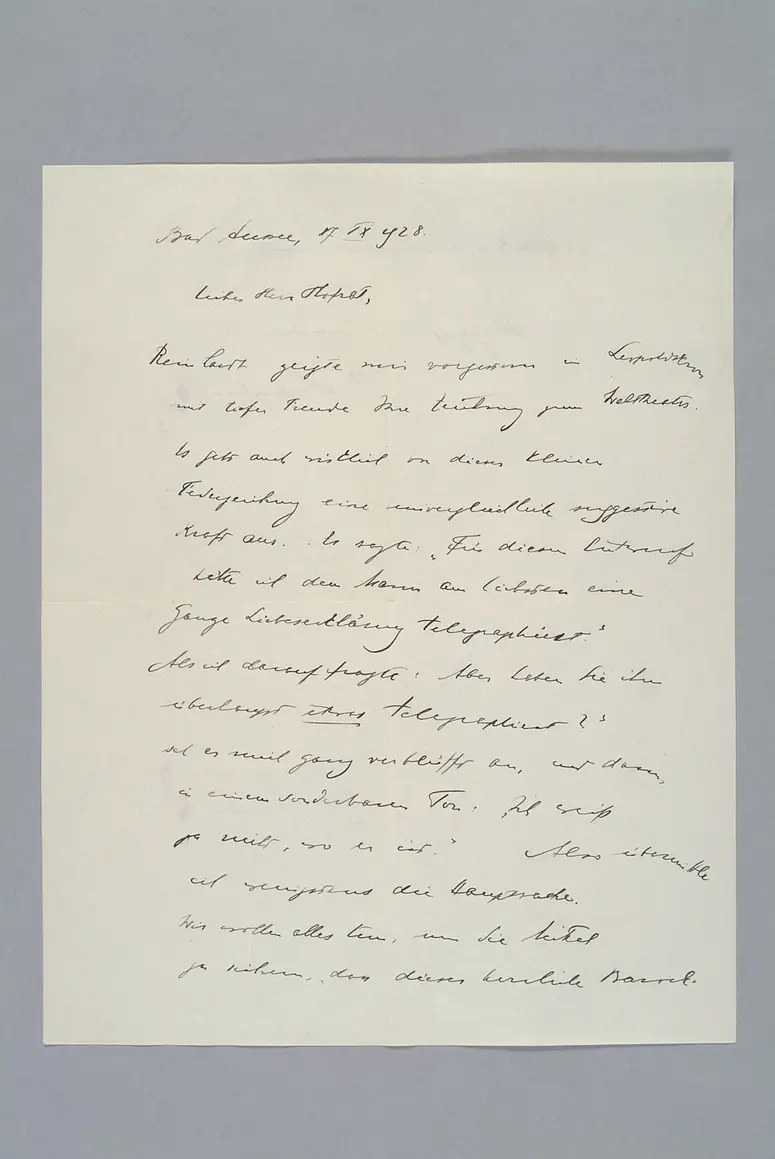 Bad Aussee, 17 IX 928.
Lieber Herr Hofrat,
Reinhardt zeigte mir vorgestern in Leopoldskron
mit tiefer Freude Ihre zum Welttheater.
Es geht auch wirklich von dieser kleinen
Federzeichnung eine unvergleichliche suggestive
Kraft aus. Er sagte: „Für diesen Entwurf
hätte ich dem Mann am liebsten eine
ganze Liebeserklärung telegraphiert."
Als ich darauf fragte: Aber haben Sie ihm
überhaupt etwas telegraphiert?"
sah er mich ganz verblüfft an, und dann,
in einem sonderbaren Ton: „Ich weiß
ja nicht, wo er ist." Also übermittle
ich wenigstens die Hauptsache.
Wir wollen alles tun, um die Mittel
zu sichern, dass dieses herrliche Barock-